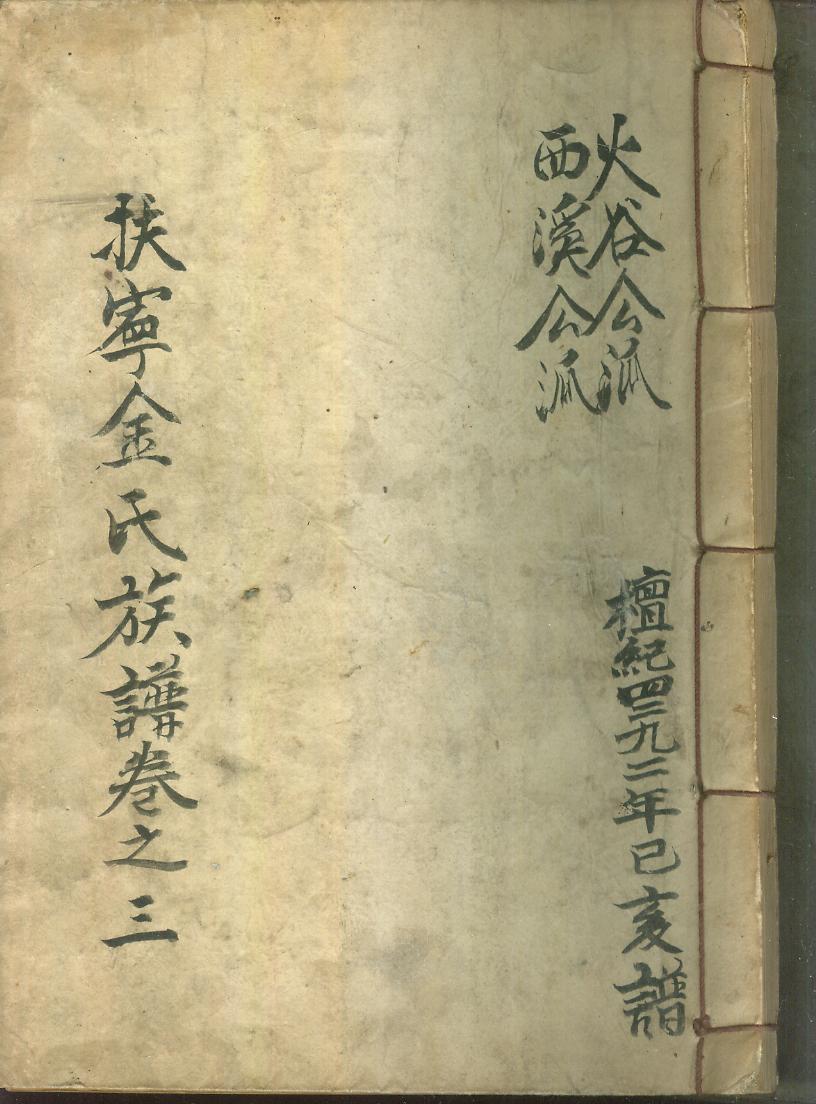 火谷公派
西溪公派
檀紀四二九二年己亥譜
扶寧金氏族譜卷之三